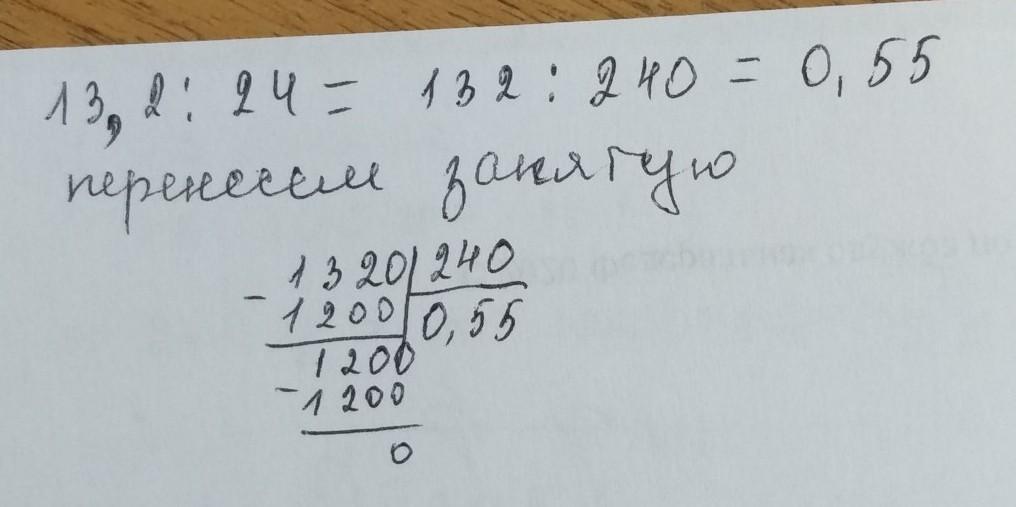 13,2 : 24 = 132 : 240 = 0,55
перенесем запятую
1320 | 240
- 1200 | 0,55
1200
- 1200
0